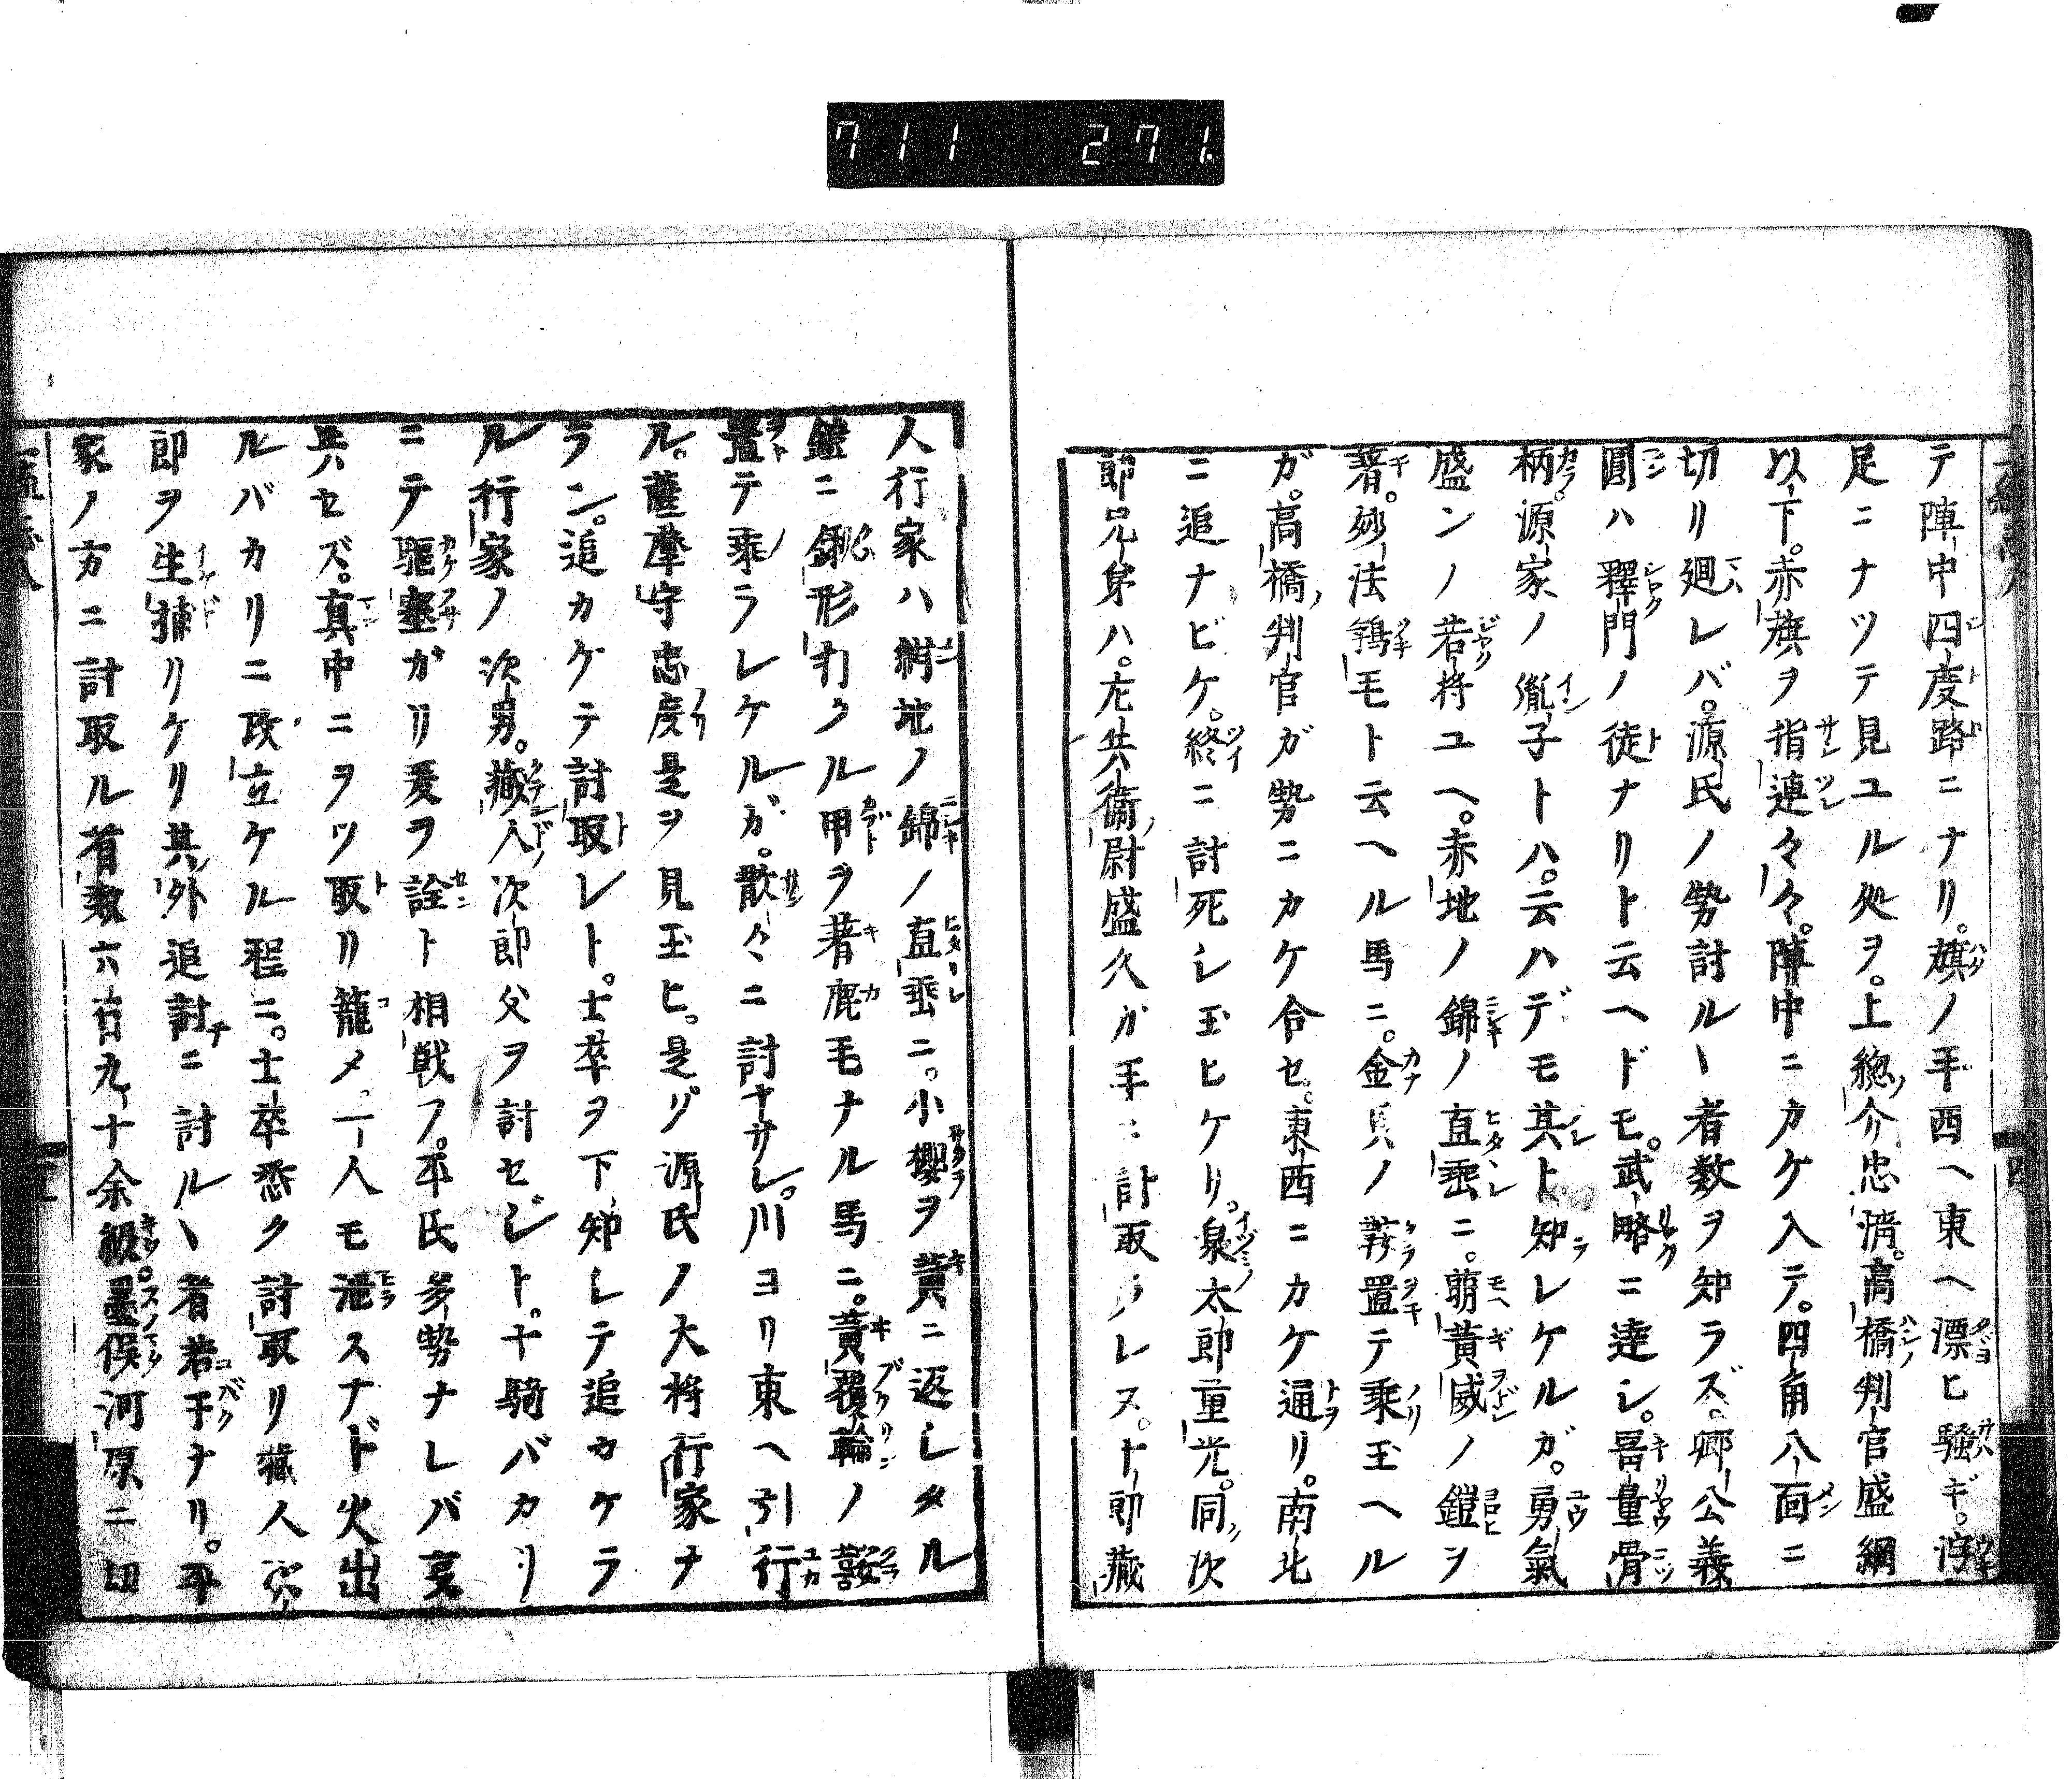 711 271.
テ陣中四度路ニナリ。旗ノ手西ヘ東ヘ漂ヒ騒ギ。浮
足ニナツテ見ユル処ヲ。上総介忠清。高橋判官盛綱
以下。赤旗ヲ指連々々。陣中ニカケ入テ。四角八面ニ
切リ廻レバ。源氏ノ勢討ルヽ者数ヲ知ラズ。卿公義
圓ハ釋門ノ徒ナリト云ヘドモ。武略ニ達シ。器量骨
柄。源家ノ胤子トハ。云ハデモ其ト知レケルガ。勇氣
盛ンノ若将ユヘ。赤地ノ錦ノ直垂ニ。萌黄威ノ鎧ヲ
著。妙法鴾毛ト云ヘル馬ニ。金貝ノ鞍置テ乗玉ヘル
ガ。高橋判官ガ勢ニカケ合セ。東西ニカケ通リ。南北
ニ追ナビケ。終ニ討死シ玉ヒケリ。泉太郎重光。同次
郎兄弟ハ。左兵衛尉盛久ガ手ニ討取ラレヌ。十郎蔵
人行家ハ紺地ノ錦ノ直垂ニ。小櫻ヲ黄ニ返シタル
鎧ニ鍬形打タル甲ヲ著鹿毛ナル馬ニ。黄覆輪ノ鞍
置テ乗ラレケルガ。散々ニ討ナサレ。川ヨリ東ヘ引行
ル。薩摩守忠度是ヲ見玉ヒ。是ゾ源氏ノ大将行家ナ
ラン。追カケテ討取レト。士卒ヲ下知シテ追カケラ
ル行家ノ次男。蔵人次郎父ヲ討セジト。十騎バカリ
ニテ駆塞ガリ爰ヲ詮ト相戦フ。平氏多勢ナレバ事
共セズ。真中ニヲツ取リ籠メ。一人モ洩スナド火出
ルバカリニ攻立ケル程ニ。士卒悉ク討取リ蔵人次
郎ヲ生捕リケリ其外追討ニ討ルヽ者若干ナリ。平
家ノ方ニ討取ル首数六百九十余級。墨俣河原ニ切